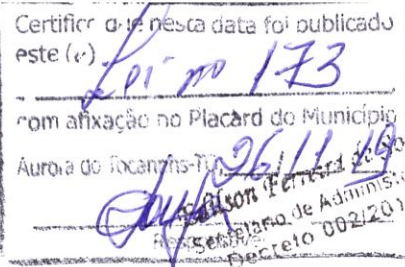 Certifico que nesta data foi publicado
este (a)
Lei nº 173
com afixação no Placard do Município
Aurora do Tocantins-TO, 26/11/19
Secretário de Administ
Decreto 002/201